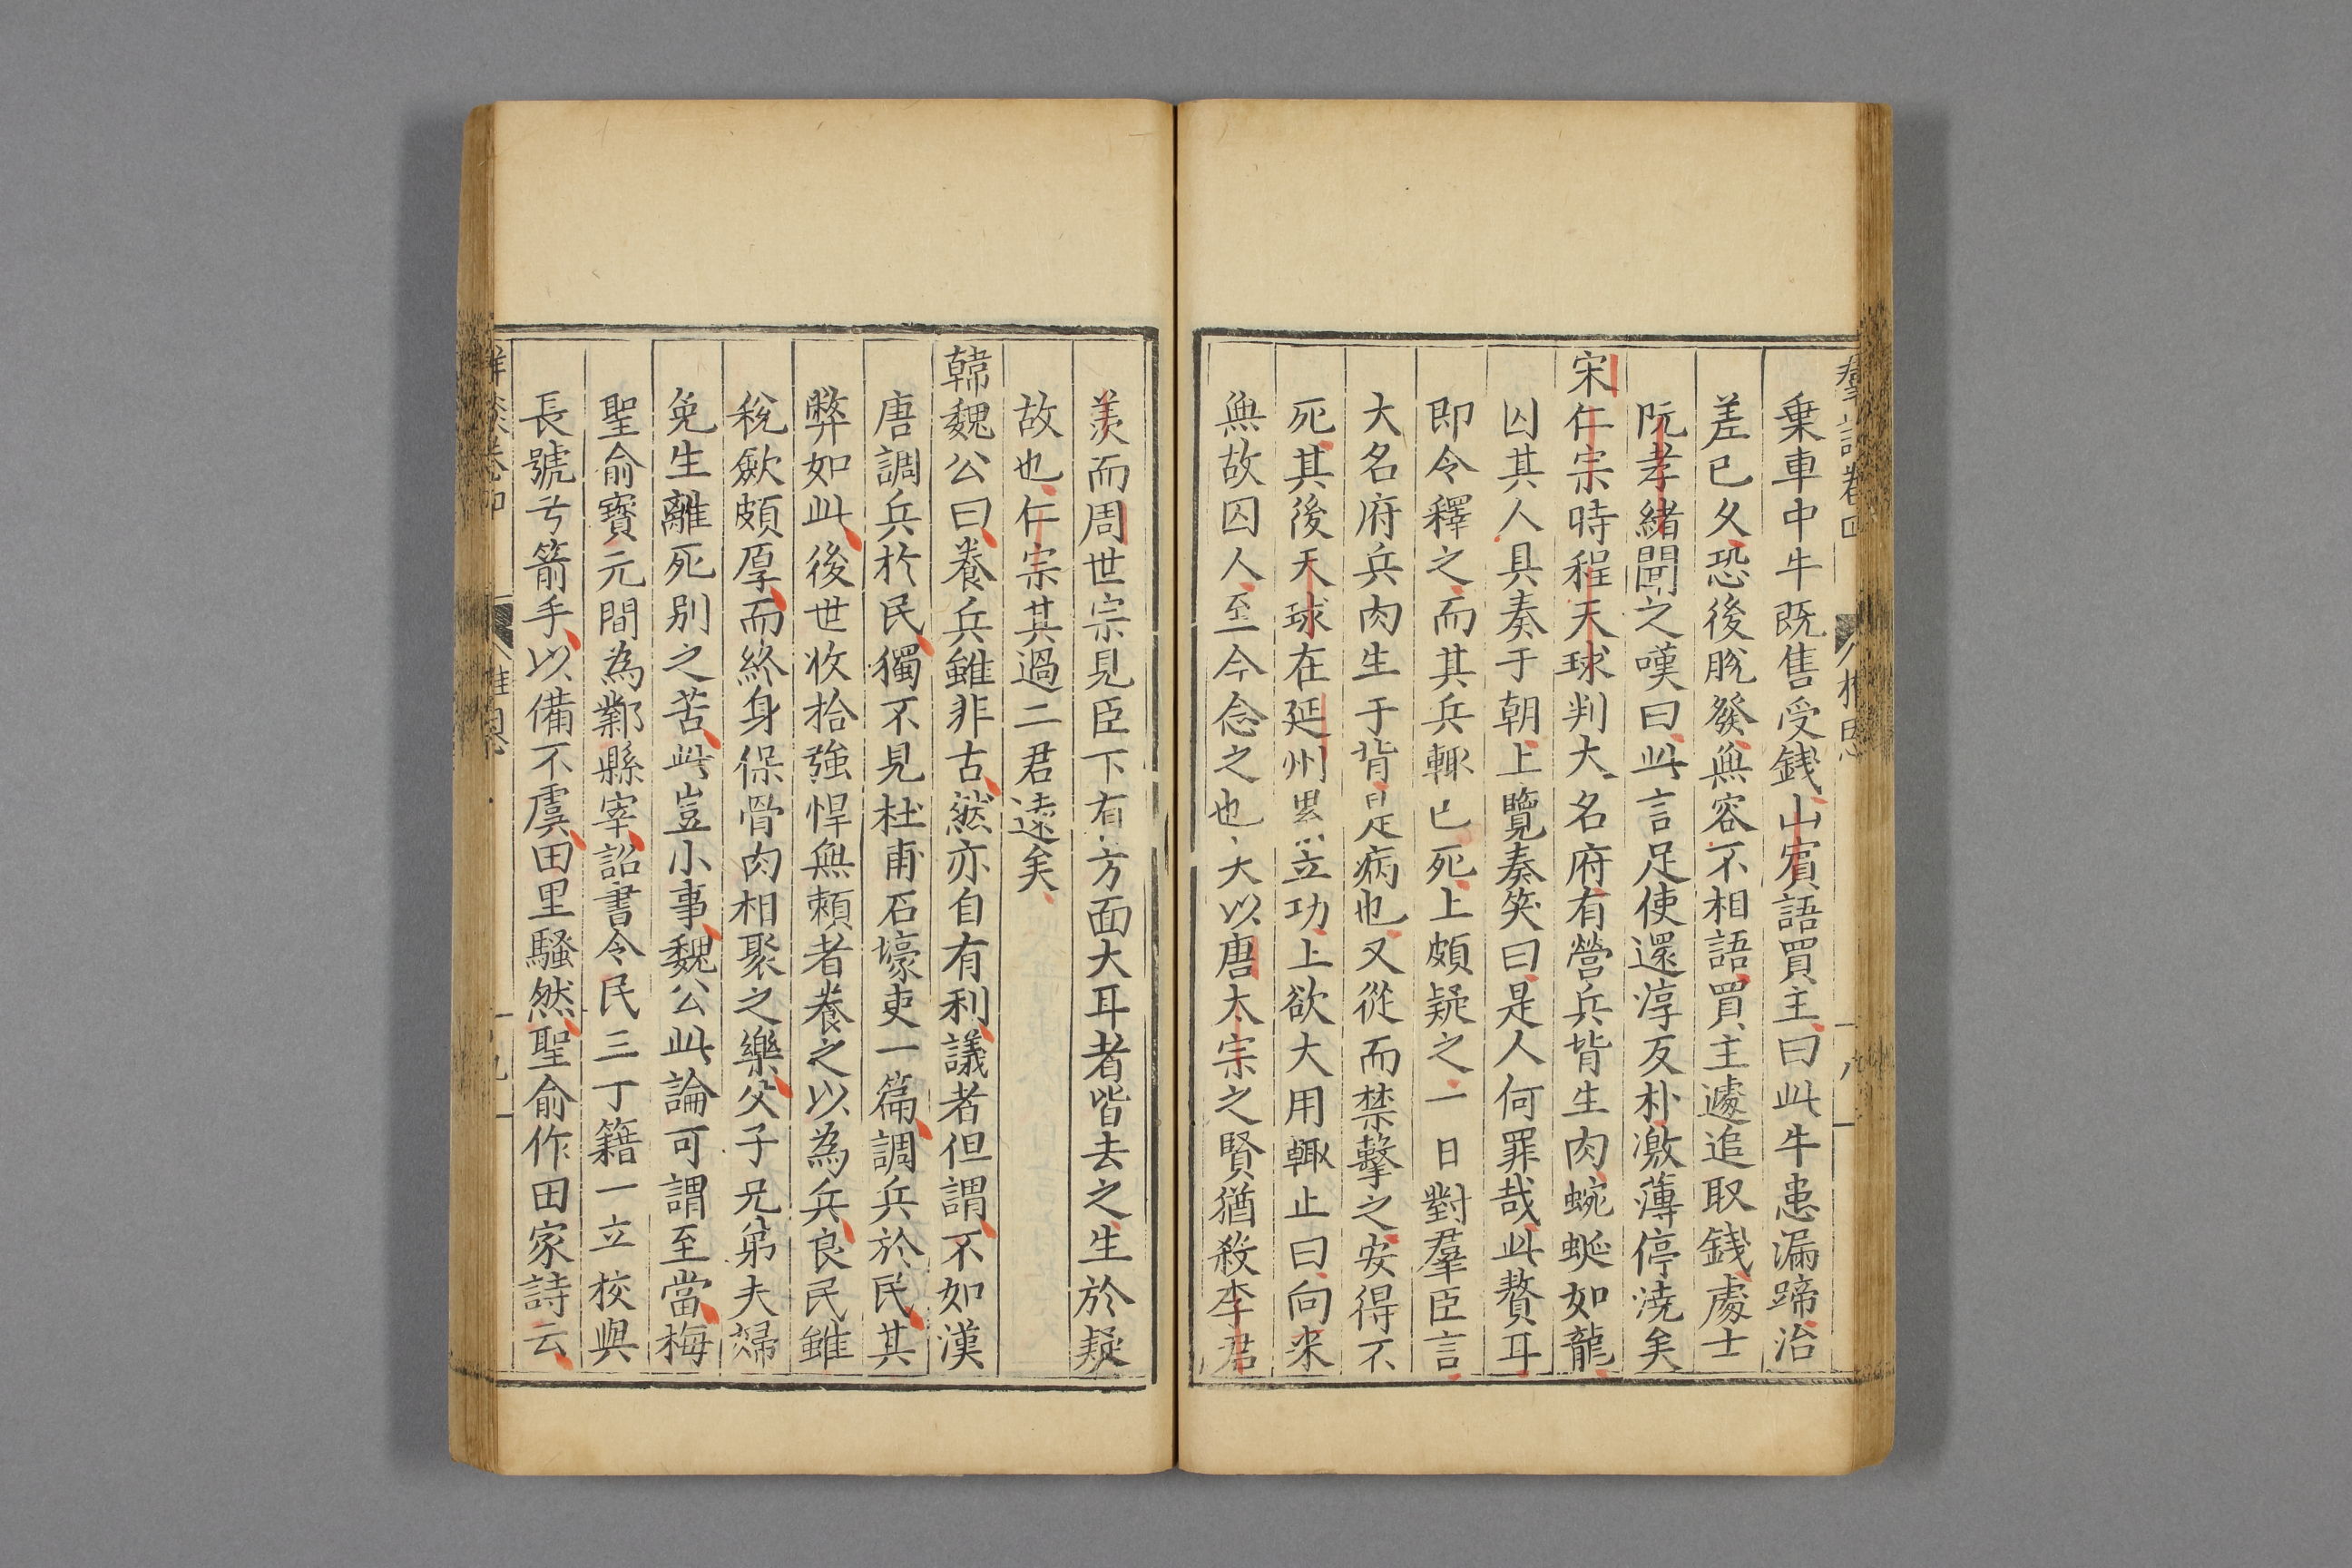 乗車中牛既售受銭山賓語買主曰此牛患漏蹄治
差已久恐後脫發無容不相語買主遽追取錢處士
阮孝緒聞之嘆曰此言足使還淳反朴激薄停澆矣
宋仁宗時程天球判大名府有營兵背生肉蜿蜒如龍
囚其人具奏于朝上覽奏笑曰是人何罪哉此贅耳
即令釋之而其兵輙已死上頗疑之一日對羣臣言
大名府兵肉生于背是病也又從而禁擊之安得不
死其後天球在延州累立功上欲大用輙止曰向來
無故囚人至今念之也夫以唐太宗之賢猶殺李君
羨而周世宗見臣下有方面大耳者皆去之生於疑
故也仁宗其過二君遠矣
韓魏公曰養兵雖非古然亦自有利議者但謂不如漢
唐調兵於民獨不見杜甫石壕吏一篇調兵於民其
弊如此後世收拾強悍無頼者養之以為兵良民雖
稅斂頗厚而終身保骨肉相聚之樂父子兄弟夫婦
免生離死別之苦此豈小事魏公此論可謂至當梅
聖俞寳元間為鄴縣宰詔書令民三丁籍一立校與
長號弓箭手以備不虞田里騷然聖俞作田家詩云